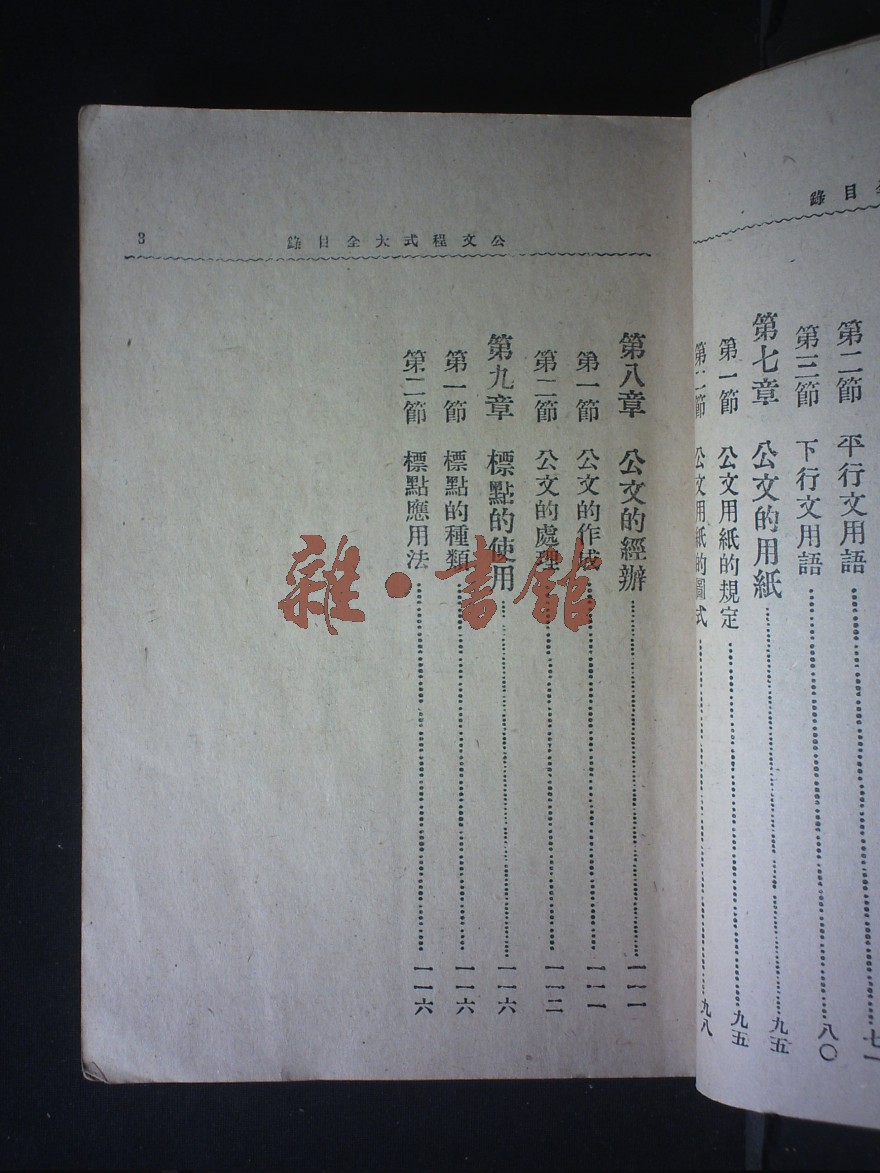 錄目
第二節 平行文用語 七一
第三節 下行文用語 八〇
第七章 公文的用紙 九五
第一節 公文用紙的規定 九五
第二節 公文用紙的圖式 九八
公文程式大全目錄 3
第八章 公文的經辦 一一一
第一節 公文的作成 一一一
第二節 公文的處理 一一二
第九章 標點的使用 一一六
第一節 標點的種類 一一六
第二節 標點應用法 一一六
雜·書館